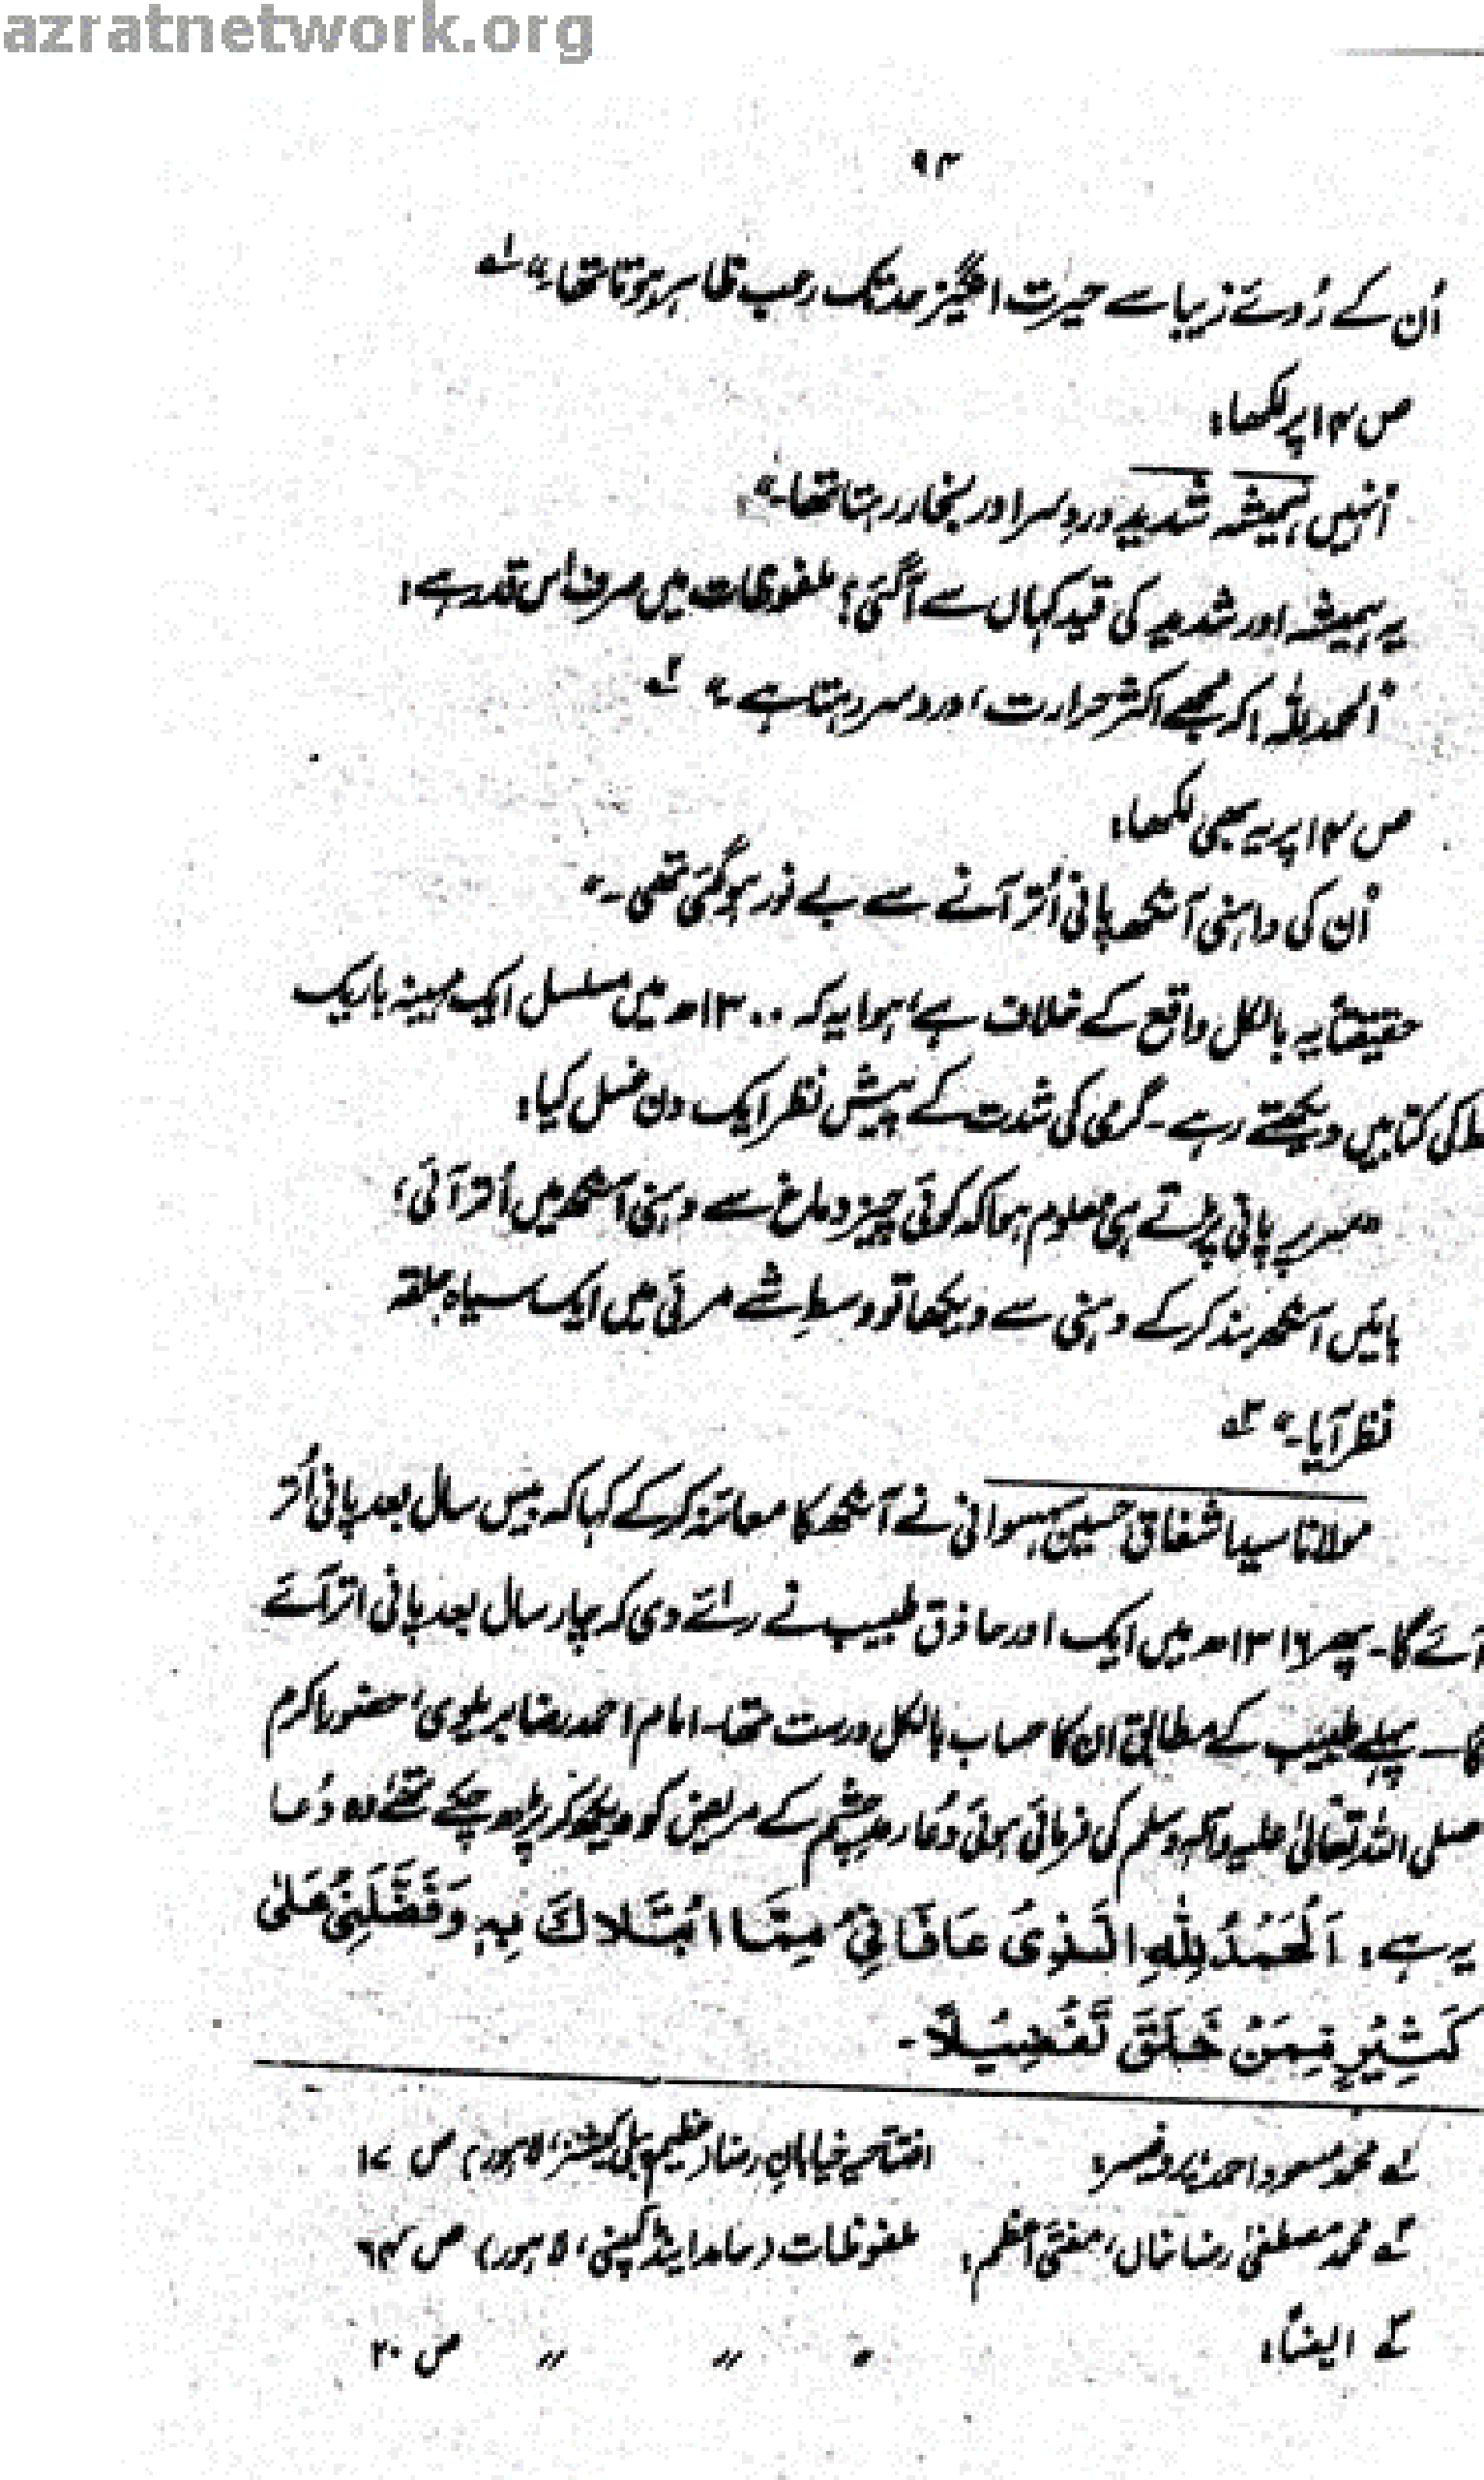 azratnetwork.org
۹۴
اُن کے رُوئے زیبا سے حیرت انگیز حد تک رعب ظاہر ہوتا تھا۔" ۱؎
ص ۱۴ پر لکھا:
"انہیں ہمیشہ شدید درد سر اور بخار رہتا تھا۔"
یہ ہمیشہ اور شدید کی قید کہاں سے آگئی؟ ملفوظات میں صرف اس قدر ہے:
"الحمد للہ! کہ مجھے اکثر حرارت اور درد سر رہتا ہے۔" ۲؎
ص ۱۴ پر یہ بھی لکھا:
"اُن کی داہنی آنکھ پانی اُتر آنے سے بے نور ہوگئی تھی۔"
حقیقتاً یہ بالکل واقع کے خلاف ہے، ہوا یہ کہ ۱۳۰۰ھ میں مسلسل ایک مہینہ باریک
کی کتابیں دیکھتے رہے۔ گرمی کی شدت کے پیش نظر ایک دن غسل کیا:
"سر پر پانی پڑتے ہی معلوم ہوا کہ کوئی چیز دماغ سے دہنی آنکھ میں اُتر آئی،
بائیں آنکھ بند کرکے دہنی سے دیکھا تو وسط شے مرئی میں ایک سیاہ حلقہ
نظر آیا۔" ۳؎
مولانا سید اشفاق حسین سہسوانی نے آنکھ کا معائنہ کرکے کہا کہ بیس سال بعد پانی اُتر
آئے گا۔ پھر ۱۳۱۶ھ میں ایک اور حاذق طبیب نے رائے دی کہ چار سال بعد پانی اتر آئے
گا۔ پہلے طبیب کے مطابق ان کا حساب بالکل درست تھا۔ امام احمد رضا بریلوی، حضور اکرم
صلی اللہ تعالیٰ علیہ وآلہ وسلم کی فرمائی ہوئی دُعا رمد چشم کے مریض کو دیکھ کر پڑھ چکے تھے، وہ دُعا
یہ ہے: اَلْحَمْدُ لِلّٰہِ الَّذِیْ عَافَانِیْ مِمَّا ابْتَلَاكَ بِہٖ وَفَضَّلَنِیْ عَلٰی
كَثِیْرٍ مِّمَّنْ خَلَقَ تَفْضِیْلًا۔
۱؎ محمد مسعود احمد، پروفیسر: افتتاحیہ خیابانِ رضا (عظیم پبلی کیشنز، لاہور) ص ۱۷
۲؎ محمد مصطفیٰ رضا خاں، مفتی اعظم: ملفوظات (حامد اینڈ کمپنی، لاہور) ص ۶۴
۳؎ ایضاً: " " " ص ۲۰